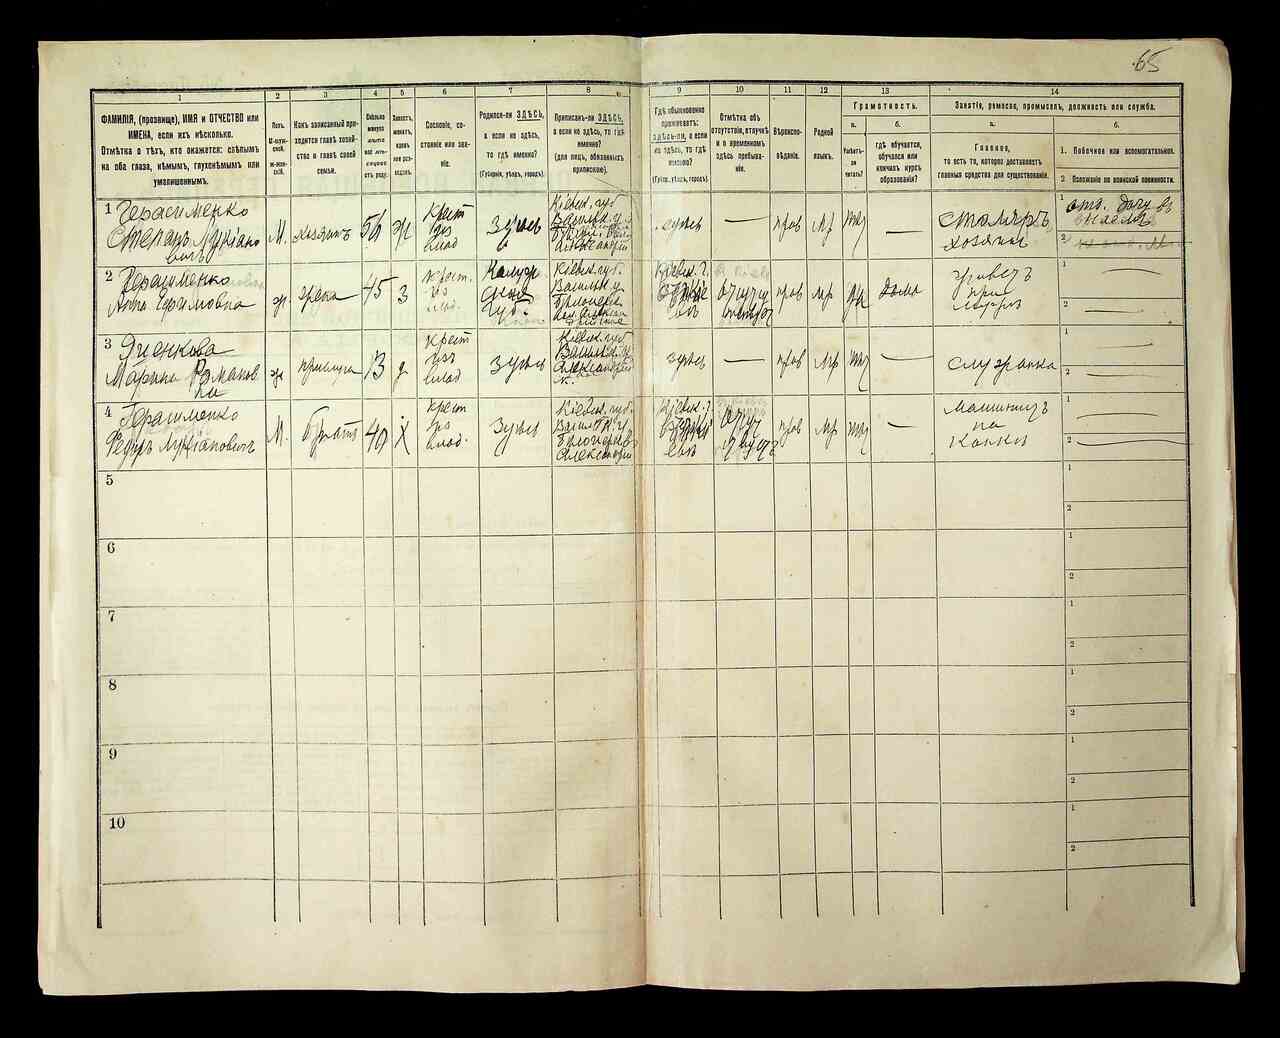 65
1
2
3
4
5
6
7
8
9
10
11
12
13
14
ФАМИЛІЯ, (прозвище), ИМЯ и ОТЧЕСТВО или
ИМЕНА, если ихъ нѣсколько.
Отмѣтка о тѣхъ, кто окажется: слѣпымъ
на оба глаза, нѣмымъ, глухонѣмымъ или
умалишеннымъ.
Полъ.
М-муж-
ской.
Ж-жен-
скій.
Какъ записанный при-
ходится главѣ хозяй-
ства и главѣ своей
семьи.
Сколько
минуло
лѣтъ
Холостъ,
женатъ,
вдовъ
или раз-
веденъ.
Сословіе, со-
стояніе или зва-
ніе.
Родился-ли ЗДѢСЬ,
а если не здѣсь,
то гдѣ именно?
(Губернія, уѣздъ, городъ).
Приписанъ-ли ЗДѢСЬ,
а если не здѣсь, то гдѣ
именно?
(для лицъ, обязанныхъ
припискою).
Гдѣ обыкновенно
проживаетъ:
ЗДѢСЬ-ЛИ, а если
не здѣсь, то гдѣ
именно?
(Губерн., уѣздъ, городъ).
Отмѣтка объ
отсутствіи, отлучкѣ
и о временномъ
здѣсь пребыва-
ніи.
Вѣроиспо-
вѣданіе.
Родной
языкъ.
Грамотность.
а.
Умѣетъ-
ли
читать?
б.
гдѣ обучается,
обучался или
кончилъ курсъ
образованія?
Занятіе, ремесло, промыселъ, должность или служба.
а.
Главное,
то есть то, которое доставляетъ
главныя средства для существованія.
б.
1. Побочное или вспомогательное.
2 Положеніе по воинской повинности.
1
Герасименко
Степанъ Лукіано
вичъ
М.
хозяинъ
56
ж
Крест
изъ
влад
Здѣсь
Кіевск. губ
Васильк. у.
здѣсь
—
прав
мр
—
Столяръ
хозяинъ
1
2
2
Герасименко
Анна Ефимовна
ж.
жена
45
з
Крест.
из
влад.
Калуж
ской
Губ.
Кіевск. губ.
Васильк у.
Кіевск. г.
отлуч
прав
мр
да
дома
живетъ
при
мужѣ
1
—
2
—
3
Яценкова
Марина Романов
на
ж
прислуга
13
д
Крест
изъ
влад
Здѣсь
Кіевск. губ
Васильк. у.
здѣсь
—
прав
мр
—
служанка
1
—
2
—
4
Герасименко
Федоръ Лукіановичъ
М.
братъ
40
Х
Крест
из
влад.
Здѣсь
Кіевск. губ.
Кіевск. г.
отлуч
прав
мр
—
машинистъ
на
1
—
2
—
5
1
2
6
1
2
7
1
2
8
1
2
9
1
2
10
1
2